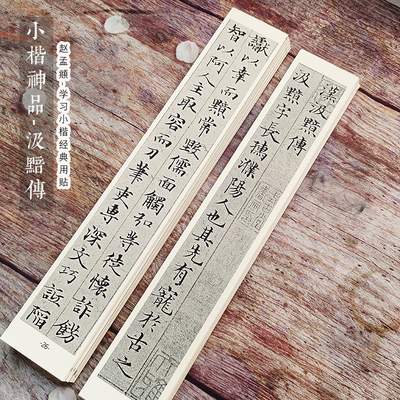 小楷神品·汲黯傳
赵孟頫·学习小楷经典用贴
讞以幸而黯常毀儒面觸弘等徒懷詐飾
智以阿人主取容而刀筆吏專深文巧詆陷
-26-
漢汲黯傳
汲黯字長孺濮陽人也其先有寵於古之